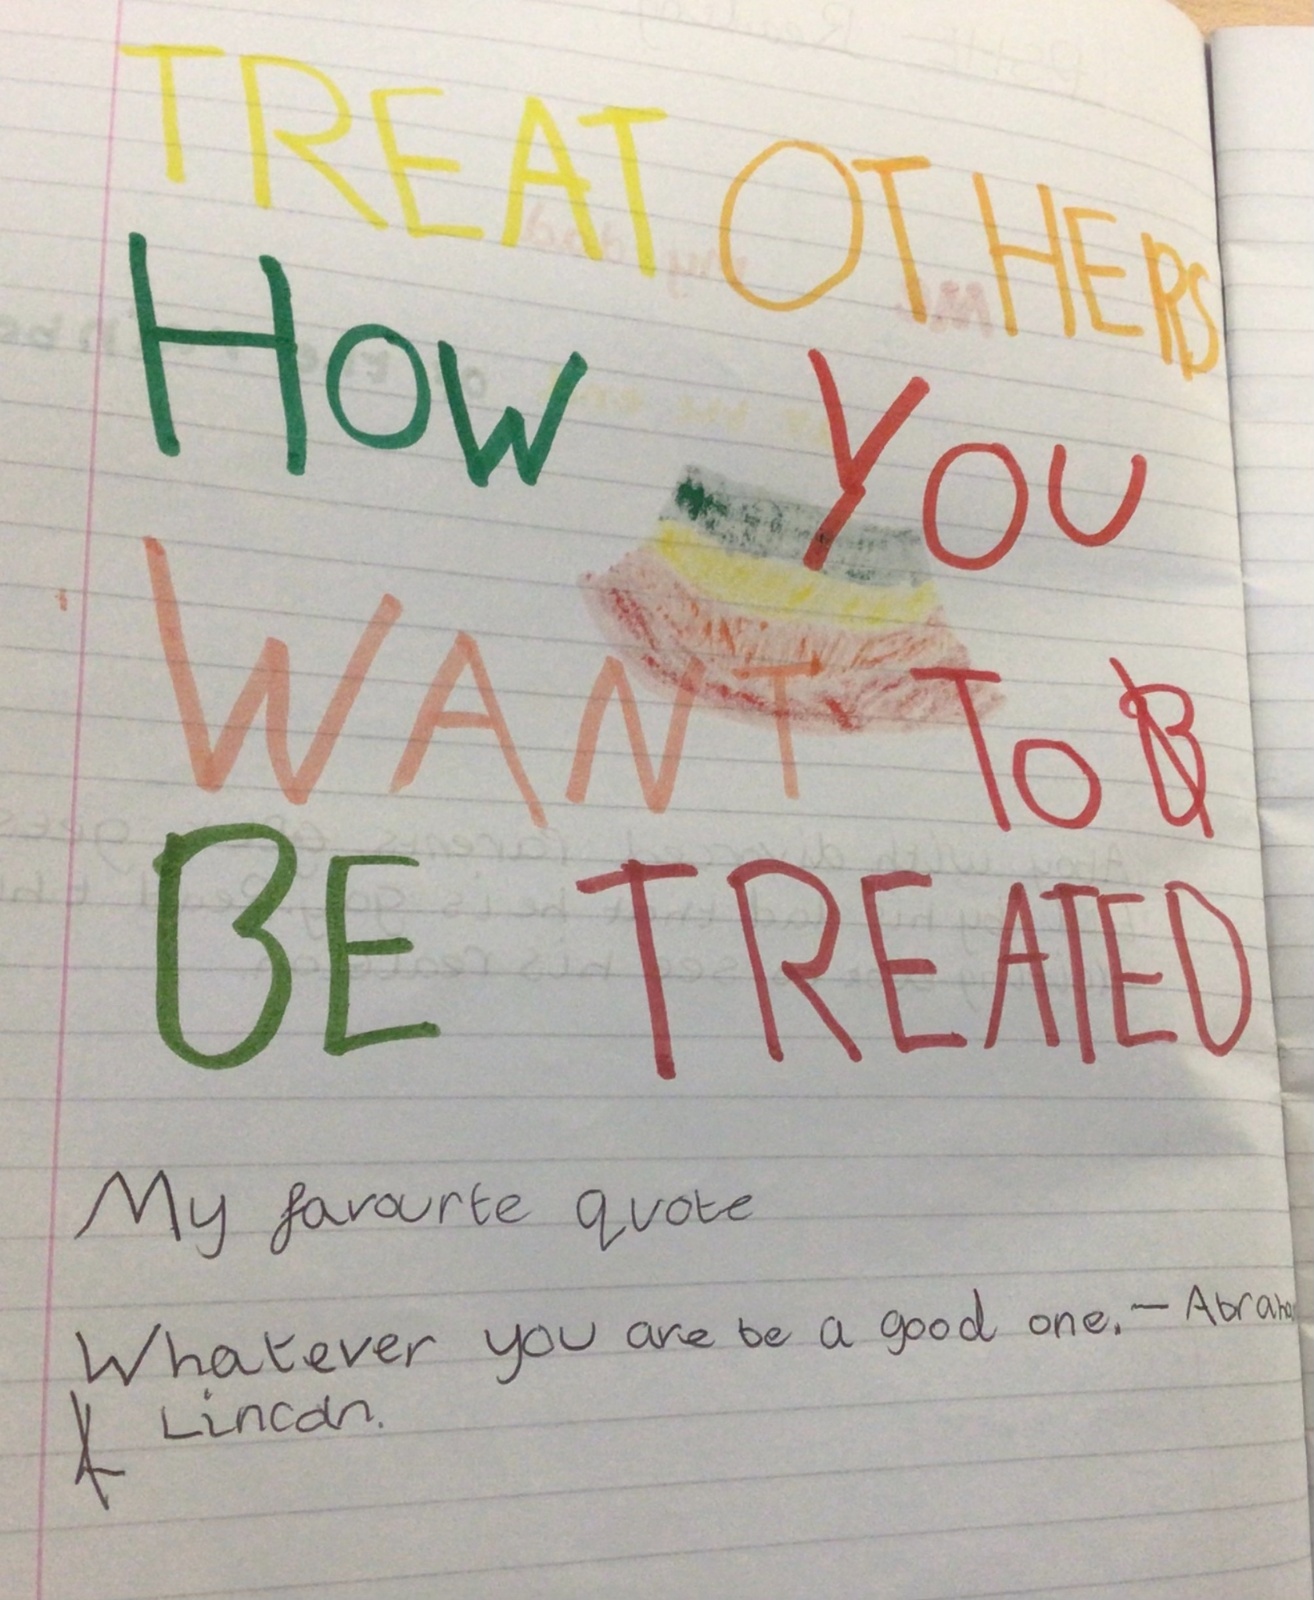 TREAT OTHERS
HOW YOU
WANT TO
BE TREATED
My favourte quote
Whatever you are be a good one. — Abraham
Lincoln.